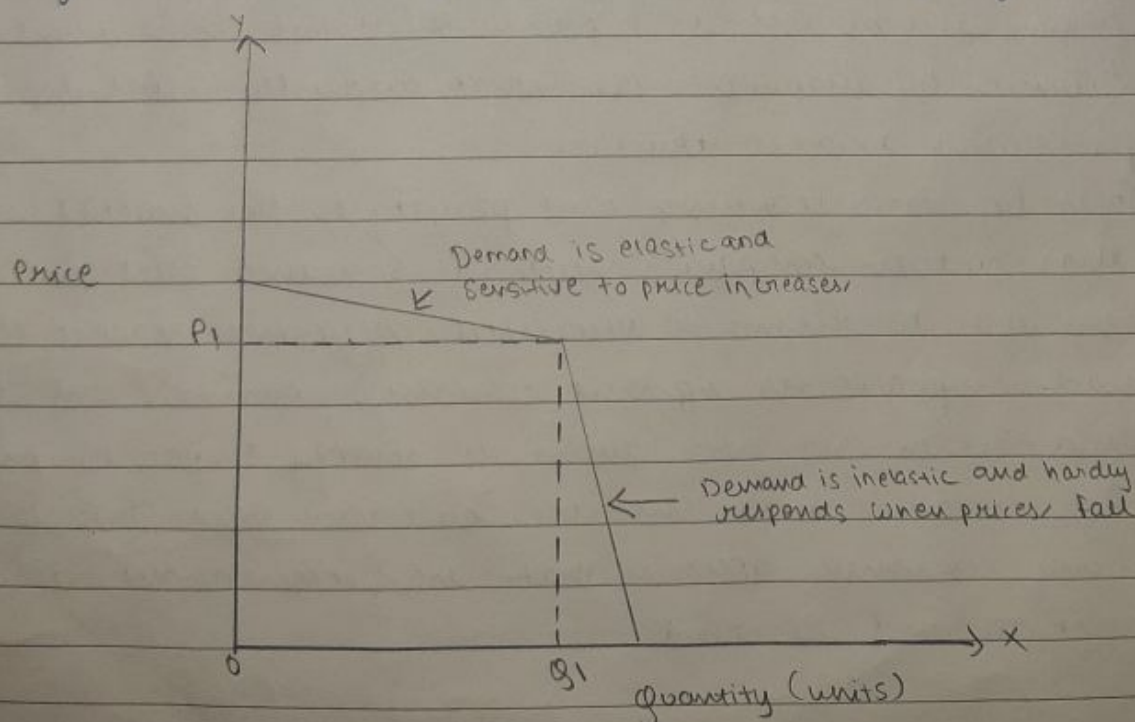 Y
Demand is elastic and
sensitive to price increases,
Price
P1
Demand is inelastic and hardly
responds when prices, fall
X
0
Q1
Quantity (units)